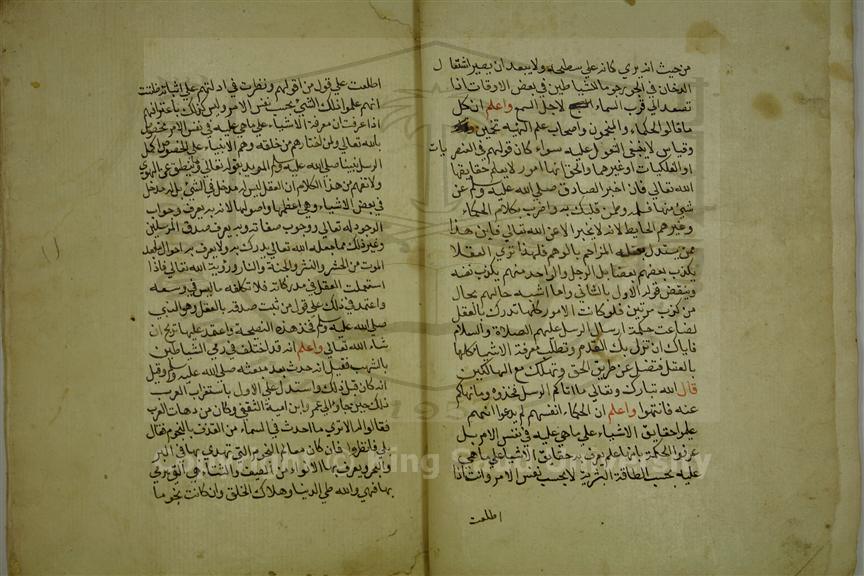 من حيث انه يرى كانه على سطحه ولا يبعد ان يصير اشتعال
الدخان في الجو رجوما للشياطين في بعض الاوقات اذا
تصعد الى قرب السماء لاجل السمع واعلم ان كل
ما قاله الحكماء والمنجمون واصحاب علم الهيئة تخمين
وقياس لا ينبغي التعويل عليه سواء كان قولهم في العنصريات
او الفلكيات او غيرهما والحق انها امور لا يعلم حقايقها
الا الله تعالى فان اخبر الصادق صلى الله عليه وسلم عن
شيء منها فخذه وطمن قلبك به واضرب بكلام الحكماء
وغيرهم الحايط لانه لا يخبر الا عن الله تعالى فاين هذا
ممن يستدل بعقله المزاحم بالوهم فلهذا ترى العقلا
يكذب بعضهم بعضا بل الرجل والواحد منهم يكذب نفسه
وينقض قوله الاول بالثاني واها اشبه حالهم بحال
من كذب مرتين فلو كانت الامور كلها تدرك بالعقل
لضاعت حكمة ارسال الرسل عليهم الصلاة والسلام
فاياك ان تزل بك القدم وتطلب معرفة الاشياء كلها
بالعقل فتضل عن طريق الحق وتهلك مع الهالكين
قال الله تبارك وتعالى ما اتاكم الرسول فخذوه وما نهاكم
عنه فانتهوا واعلم ان الحكماء انفسهم لم يدعوا انهم
علموا حقايق الاشياء على ما هي عليه في نفس الامر بل
عرفوا الحكمة بانها علم يعرف به حقايق الاشيا على ما هي
عليه بحسب الطاقة البشرية لا بحسب نفس الامر وانت اذا
اطلعت
اطلعت على قول من اقوالهم ونظرت في ادلتهم على اشيا ظننت
انهم علموا ذلك الشيء بحسب نفس الامر وليس كذلك باعترافهم
اذا عرفت ان معرفة الاشياء على ما هي عليه في نفس الامر مختص
بالله تعالى ولمن اختارهم من خلقه وهم الانبياء على الخصوص اكمل
الرسل نبينا صلى الله عليه وسلم المويد بقوله تعالى وما ينطق عن الهوى
ولا تفهم من هذا الكلام ان العقل ليس له مدخل في الشيء بل له مدخل
في بعض الاشياء وهي اعظمها واصولها لانه به يعرف وجواب
الوجود له تعالى ووجوب صفاته وبه يعرف صدق المرسلين
وغير ذلك مما جعله الله تعالى يدرك به ولا يعرف به احوال ما بعد
الموت من الحشر والنشر والجنة والنار ورؤية الله تعالى فاذا
استعملت العقل في مدركاته فلا تكلفه ما ليس في وسعه
واعتمد في ذلك على قول من ثبت صدقه بالعقل وهو النبي
صلى الله عليه وسلم فخذ هذه النصيحة واعتمد عليها تربح ان
شاء الله تعالى واعلم انه قد اختلف في رمي الشياطين
بالشهب فقيل انه حدث بعد مبعثه صلى الله عليه وسلم وقيل
انه كان قبل ذلك واستدل على الاول باستغراب العرب
ذلك حين جاؤا الى عمرو بن امية الثقفي وكان من دهات العرب
فقالوا له الا ترى ما احدث في السماء من القذف بالنجوم فقال
بلى فانظروا فان كان معالم النجوم التي تهتدي بها في البر
والبحر ويعرف بها الانواء من الصيف والشتاء هي التي يرمي
بها فهي والله طي الدنيا وهلاك الخلق وان كانت نجوما